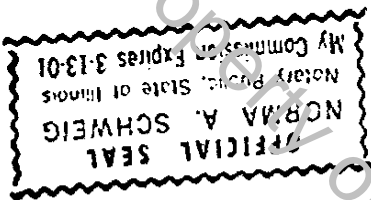 OFFICIAL SEAL
NORMA A. SCHWEIG
Notary Public, State of Illinois
My Commission Expires 3-13-01
Property O